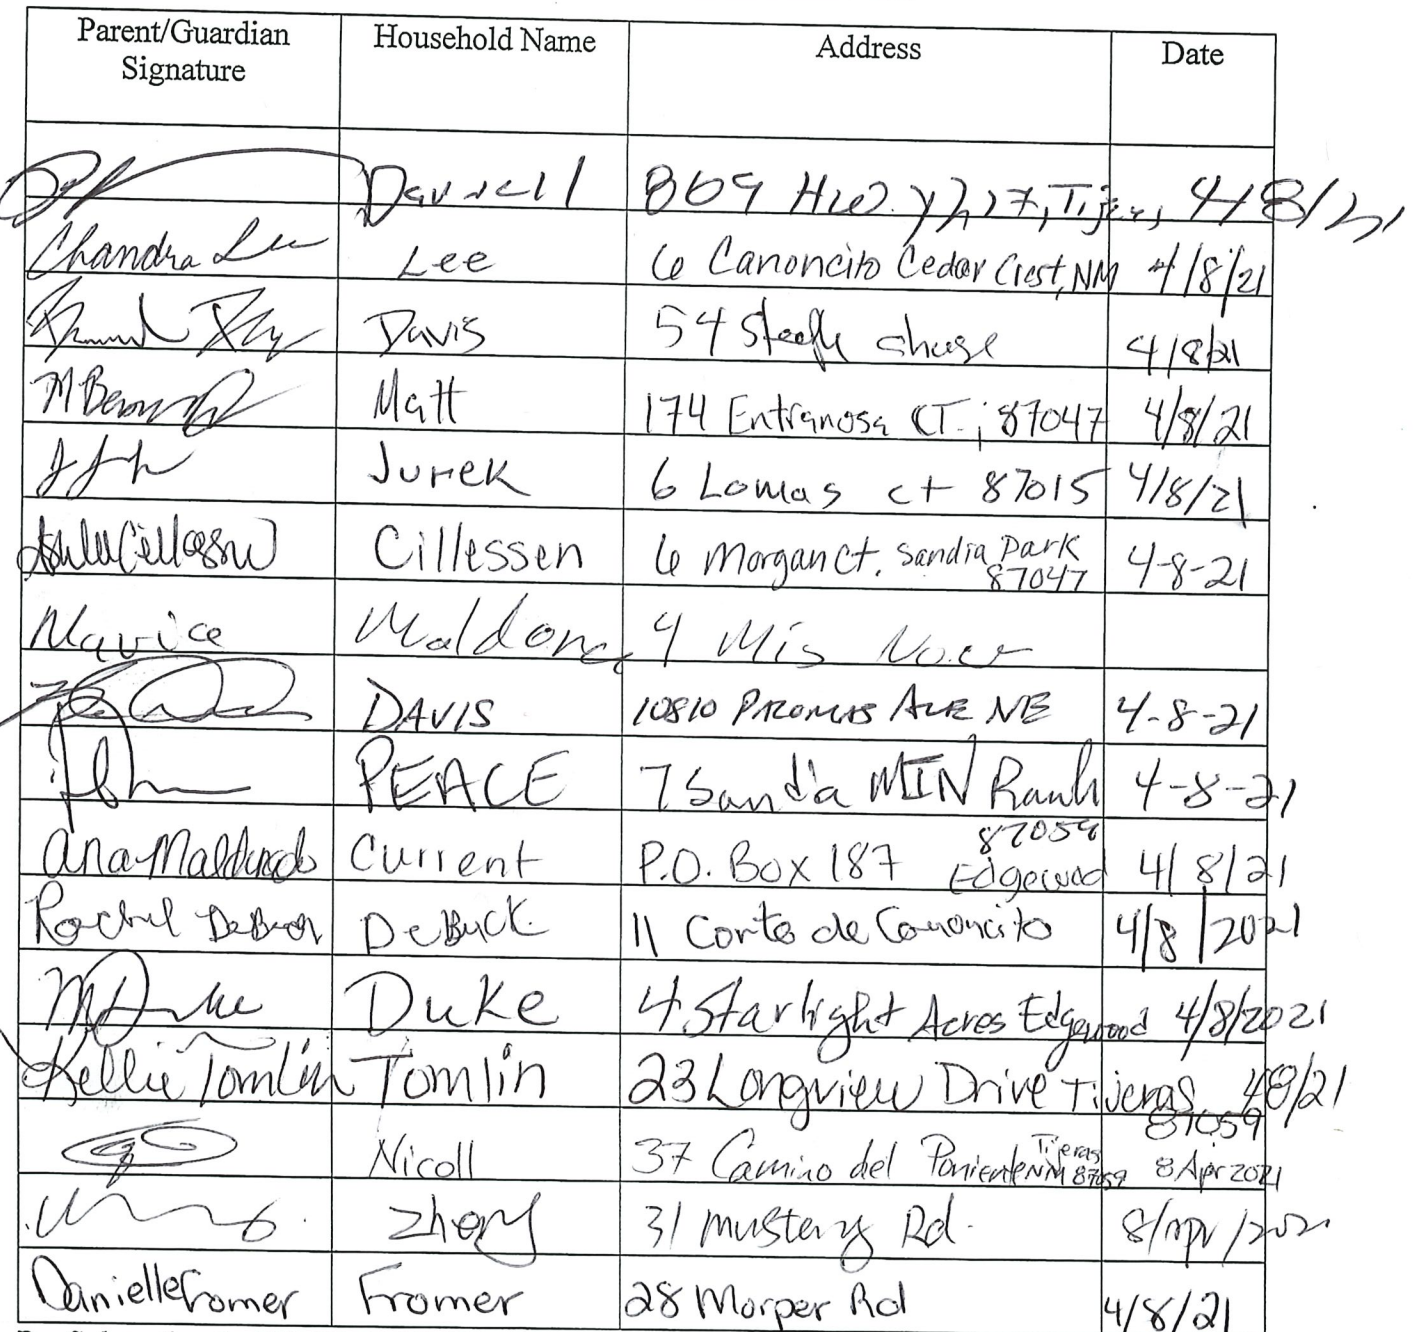 Parent/Guardian Signature Household Name Address Date
869 Tijeras, 4/8/21
Chandra Lee Lee 6 Canoncito Cedar Crest, NM 4/8/21
Davis 54 Steeple chase 4/8/21
Matt 174 Entranosa CT. ; 87047 4/8/21
Jurek 6 Lomas ct 87015 4/8/21
Cillessen Cillessen 6 Morgan Ct. Sandia Park 87047 4-8-21
4
DAVIS 10810 PALOMAS AVE NE 4-8-21
PEACE 7 Sandia MTN Ranch 4-8-21
87059
Ana Maldonado Current P.O. Box 187 Edgewood 4/8/21
Rachel DeBuck DeBuck 11 Corte de Canoncito 4/8/2021
M Duke Duke 4 Starlight Acres Edgewood 4/8/2021
Kellie Tomlin Tomlin 23 Longview Drive Tijeras 4/8/21
87059
Nicoll 37 Camino del Poniente Tijeras NM 87059 8 Apr 2021
31 Rd.
Danielle Fromer Fromer 28 Morper Rd 4/8/21